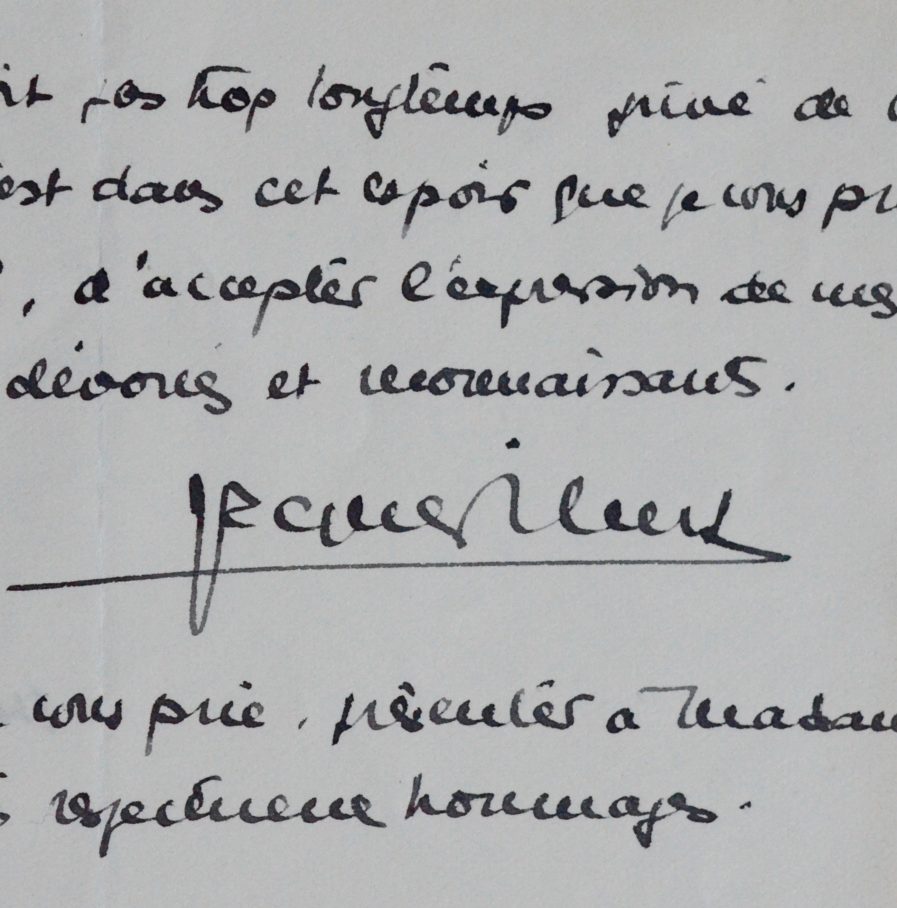 pas trop longtemps privé de
est dans cet espoir que je vous pri
, d'accepter l'expression de mes
dévoués et reconnaissants.
Jacques Ibert
vous prie, présenter à Madam
respectueux hommages.